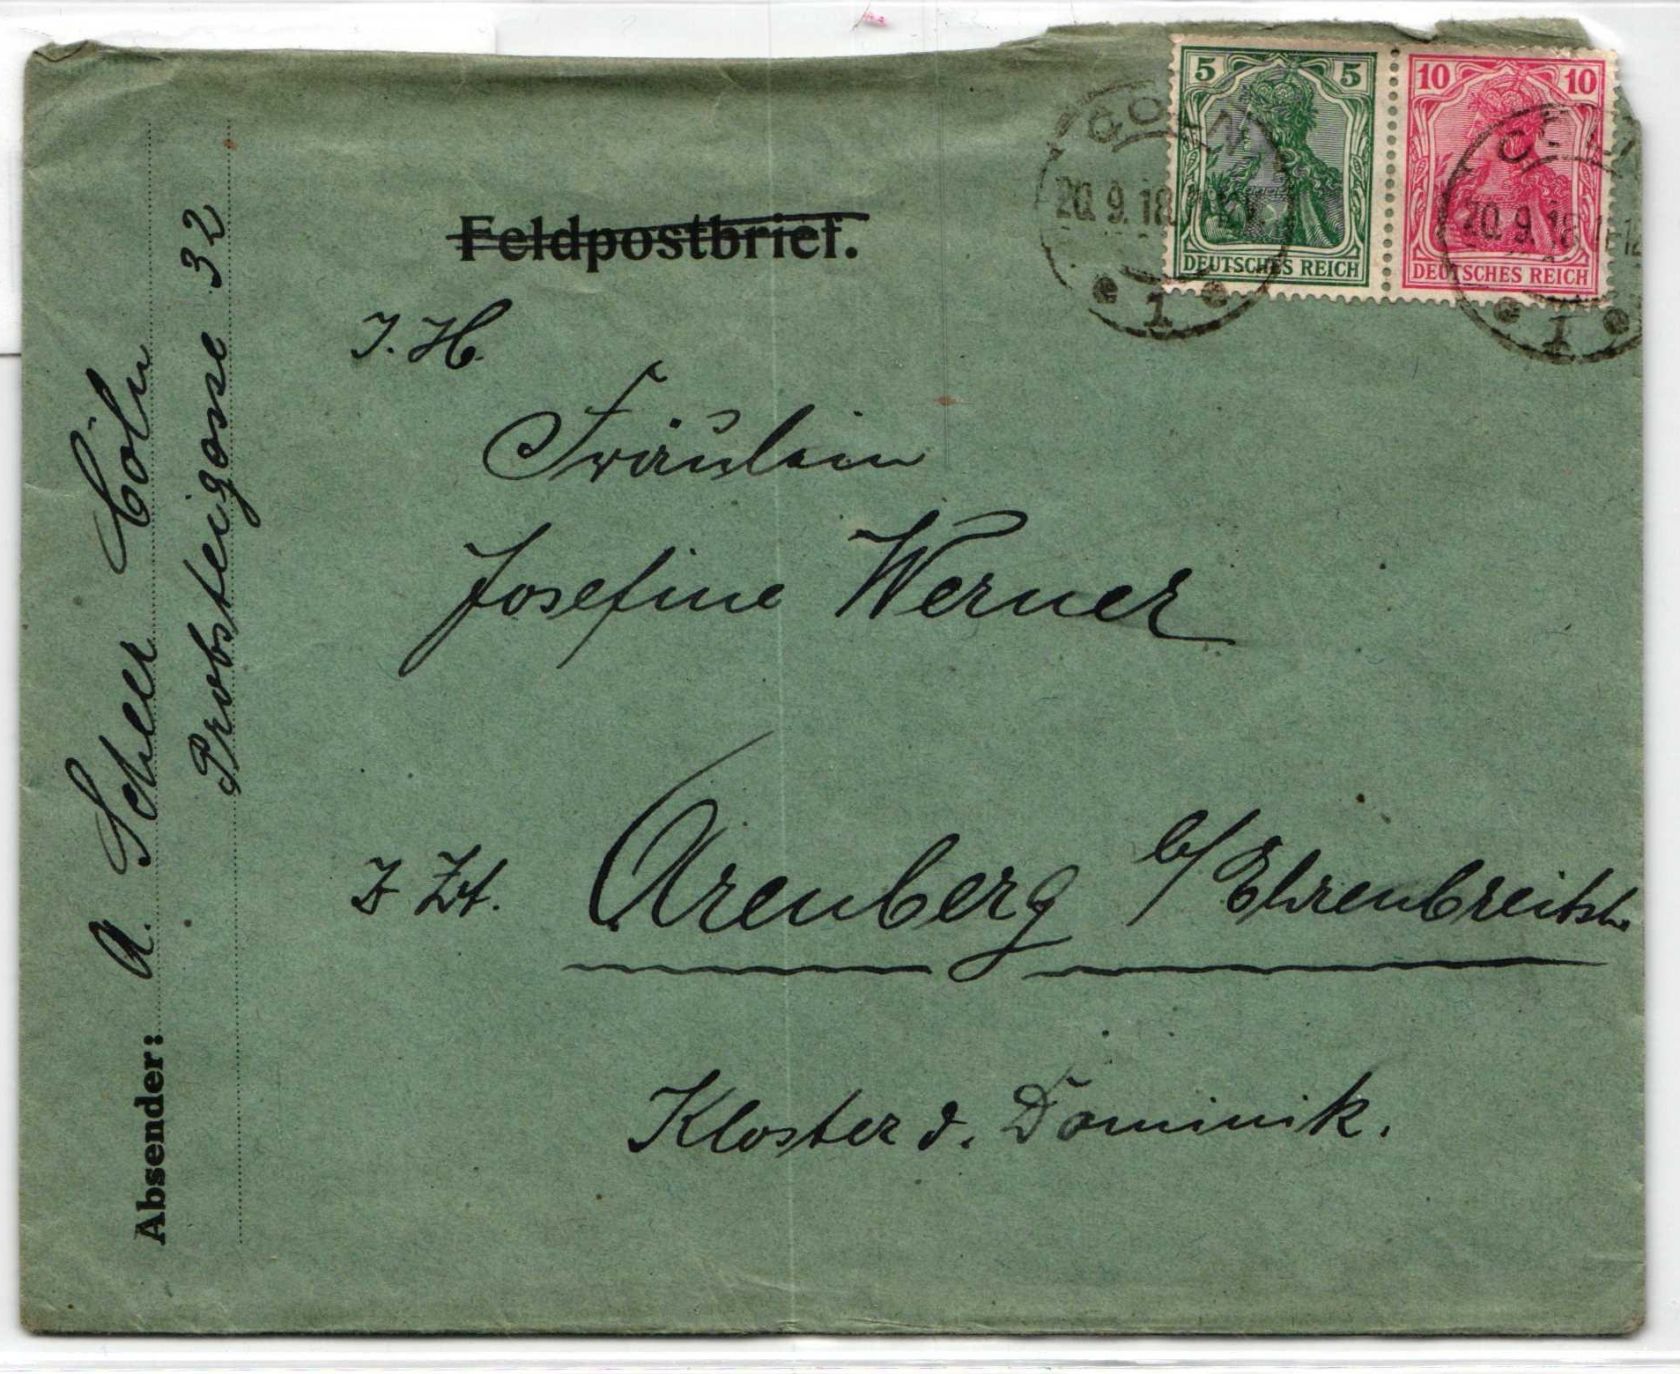 5 5
DEUTSCHES REICH
10 10
DEUTSCHES REICH
CÖLN
20.9.18.
1
20.9.18.11-12
1
Feldpostbrief.
J. H.
Fräulein
Josefine Werner
Z Zt. Arenberg b/Ehrenbreitst.
Kloster d. Dominik.
Absender: A. Scheer Cöln
Probsteigasse 32